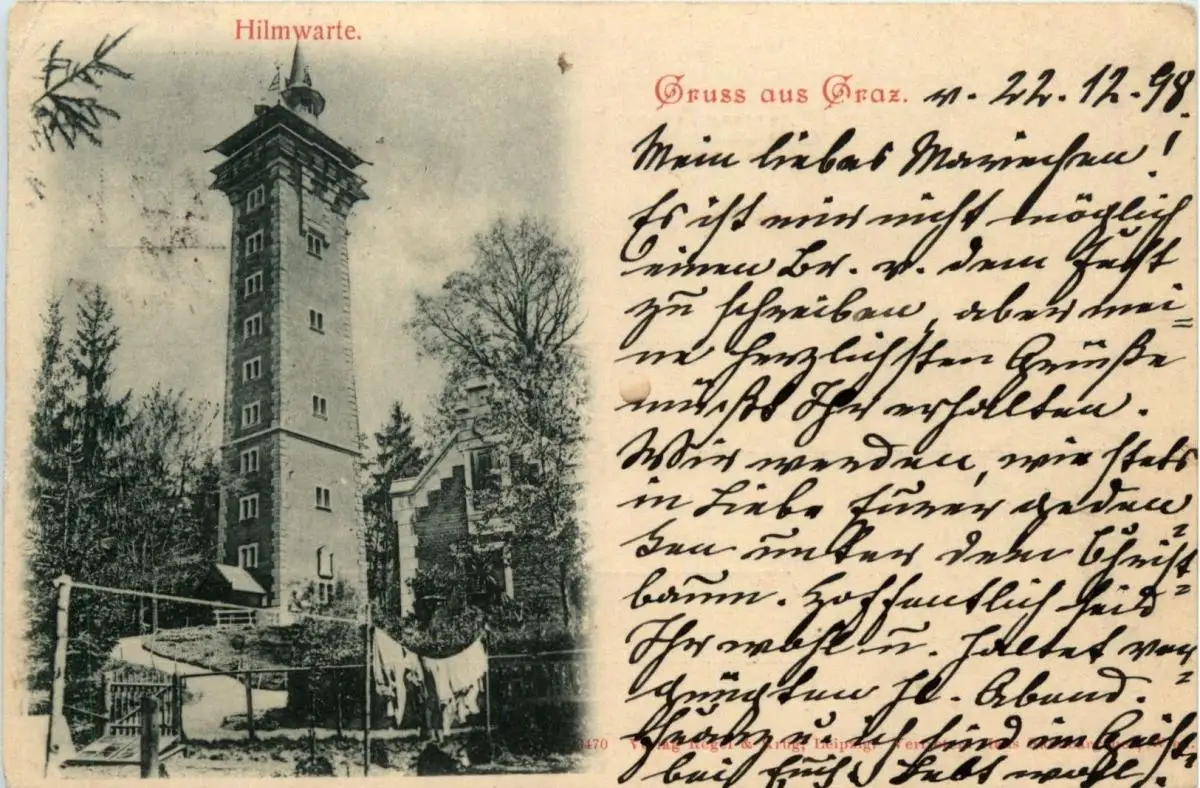 Hilmwarte.
Gruss aus Graz. v. 22.12.98.
Mein liebes Mariechen!
Es ist mir nicht möglich
einen Br. v. dem Fest
zu schreiben, aber mei=
ne herzlichsten Grüße
müßt Ihr erhalten.
Wir werden, wie stets
in Liebe Eurer geden=
ken unter dem Christ=
baum. Hoffentlich seid
Ihr wohl u. haltet ver
gnügten hl. Abend.
u. ich sind im Geiste
bei Euch. Lebt wohl.
470 Verlag Regel & Krug, Leipzig.